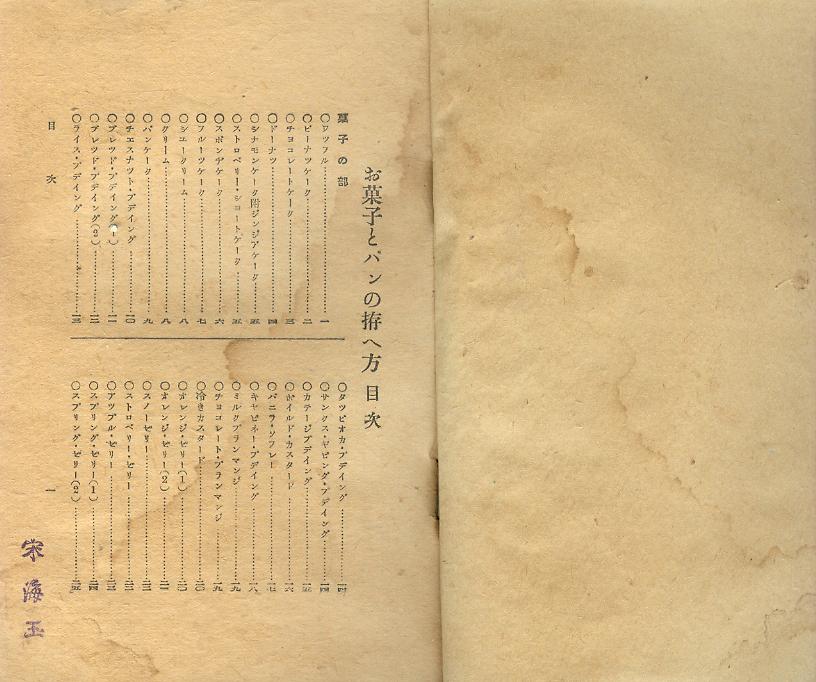 お菓子とパンの拵へ方 目次
菓子の部
○ワッフル 一
○ピーナツケーク 二
○チョコレートケーク 三
○ドーナツ 四
○シナモンケーク附ジンジアケーク 五
○ストロベリー・ショートケーク 五
○スポンヂケーク 六
○フルーツケーク 七
○シュークリーム 八
○クリーム 八
○パンケーク 九
○チェスナット・プデイング 一〇
○ブレッド・プデイング(1) 一一
○ブレッド・プデイング(2) 一二
○ライス・プデイング 一三
○タツピオカ・プデイング 一四
○サンクス・ギビング・プデイング 一四
○カテージプデイング 一五
○ボイルド・カスタード 一六
○バニラ・ソフレー 一七
○キャビネー・プデイング 一八
○ミルクブランマンジ 一九
○チョコレート・ブランマンジ 一九
○冷きカスタード 二〇
○オレンジ・ゼリー(1) 二〇
○オレンジ・ゼリー(2)
○スノーゼリー
○ストロベリー・ゼリー
○アップル・ゼリー
○スプリング・ゼリー(1) 二四
○スプリング・ゼリー(2) 二五
目次
一
宋海玉